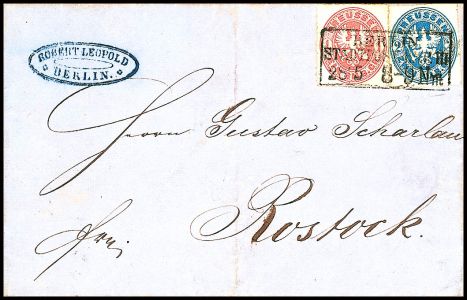 ROBERT LEOPOLD
BERLIN.
PREUSSEN
PREUSSEN
BERLIN
26 5 8-9 Nm
Herrn Gustav Scharlau
Rostock.